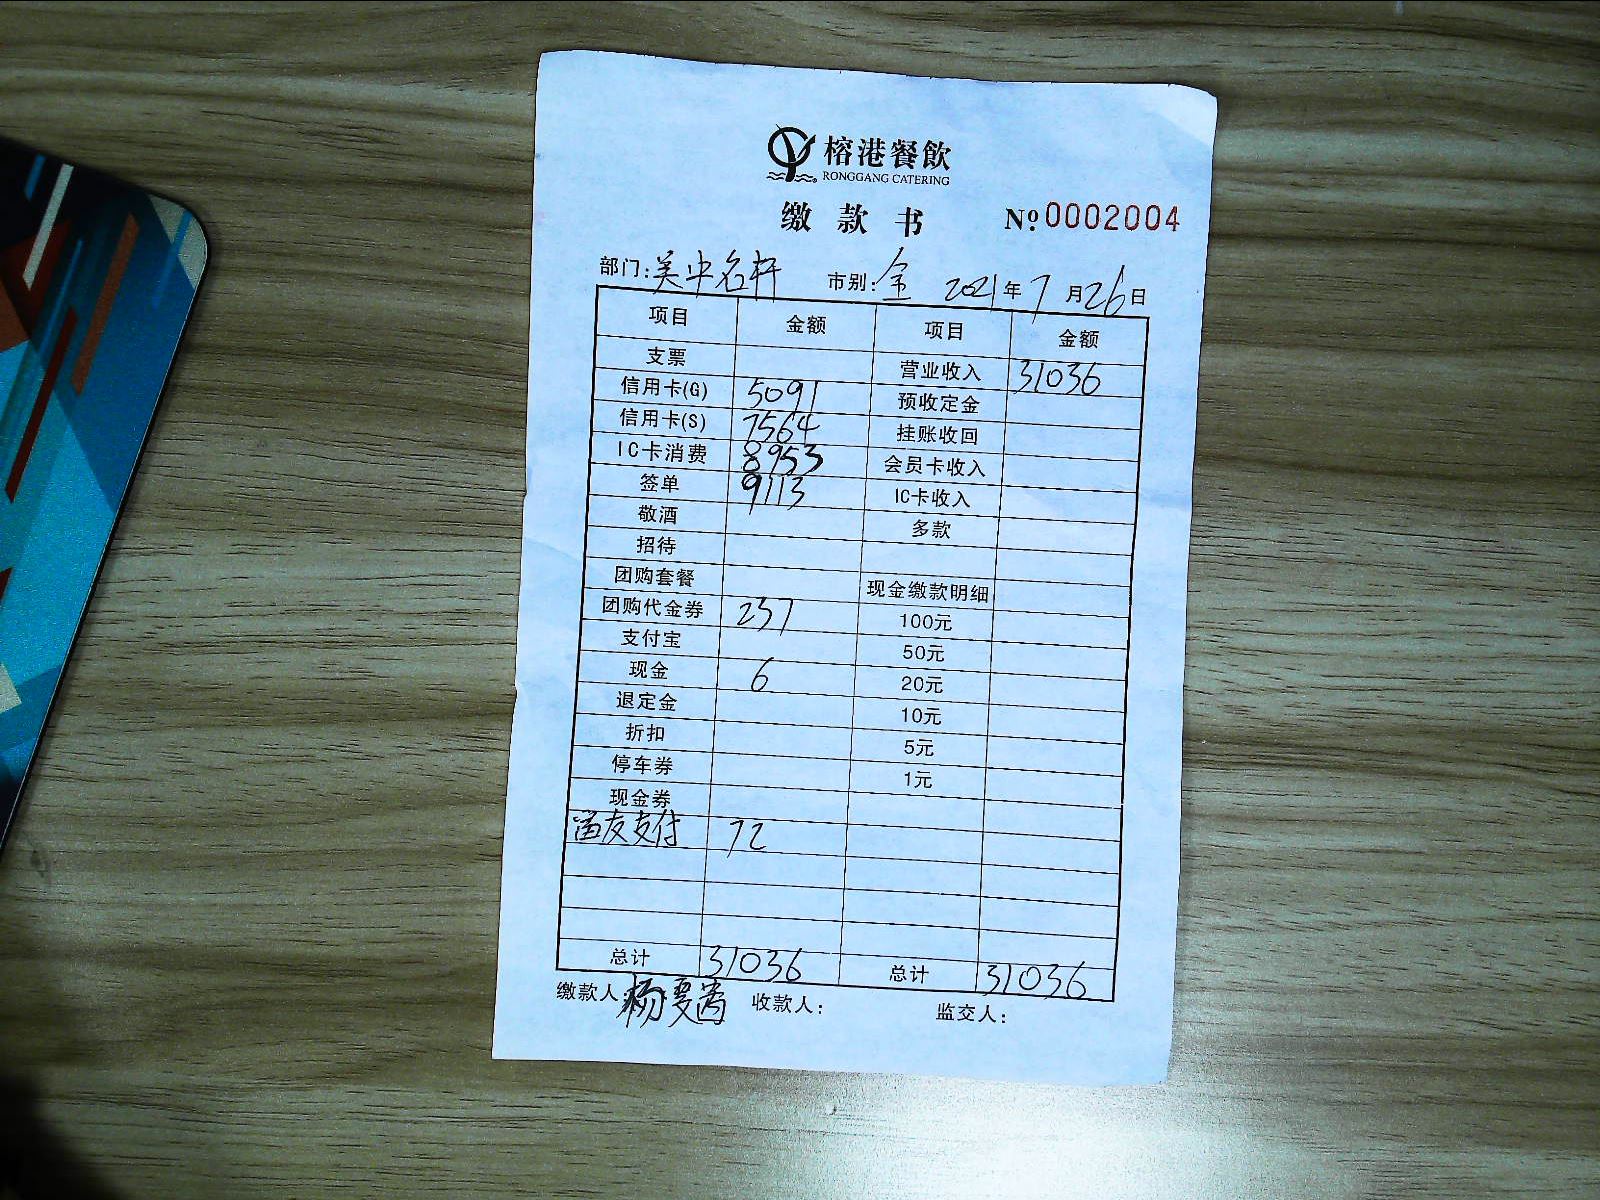 榕港餐飲
RONGGANG CATERING
缴款书 No.0002004
部门: 市别:全 2021年7月26日
项目 金额 项目 金额
支票 营业收入 31036
信用卡(G) 5091 预收定金
信用卡(S) 7564 挂账收回
IC卡消费 8953 会员卡收入
签单 9113 IC卡收入
敬酒 多款
招待
团购套餐 现金缴款明细
团购代金券 237 100元
支付宝 50元
现金 6 20元
退定金 10元
折扣 5元
停车券 1元
现金券
友支付 72
总计 31036 总计 31036
缴款人: 杨 收款人: 监交人: